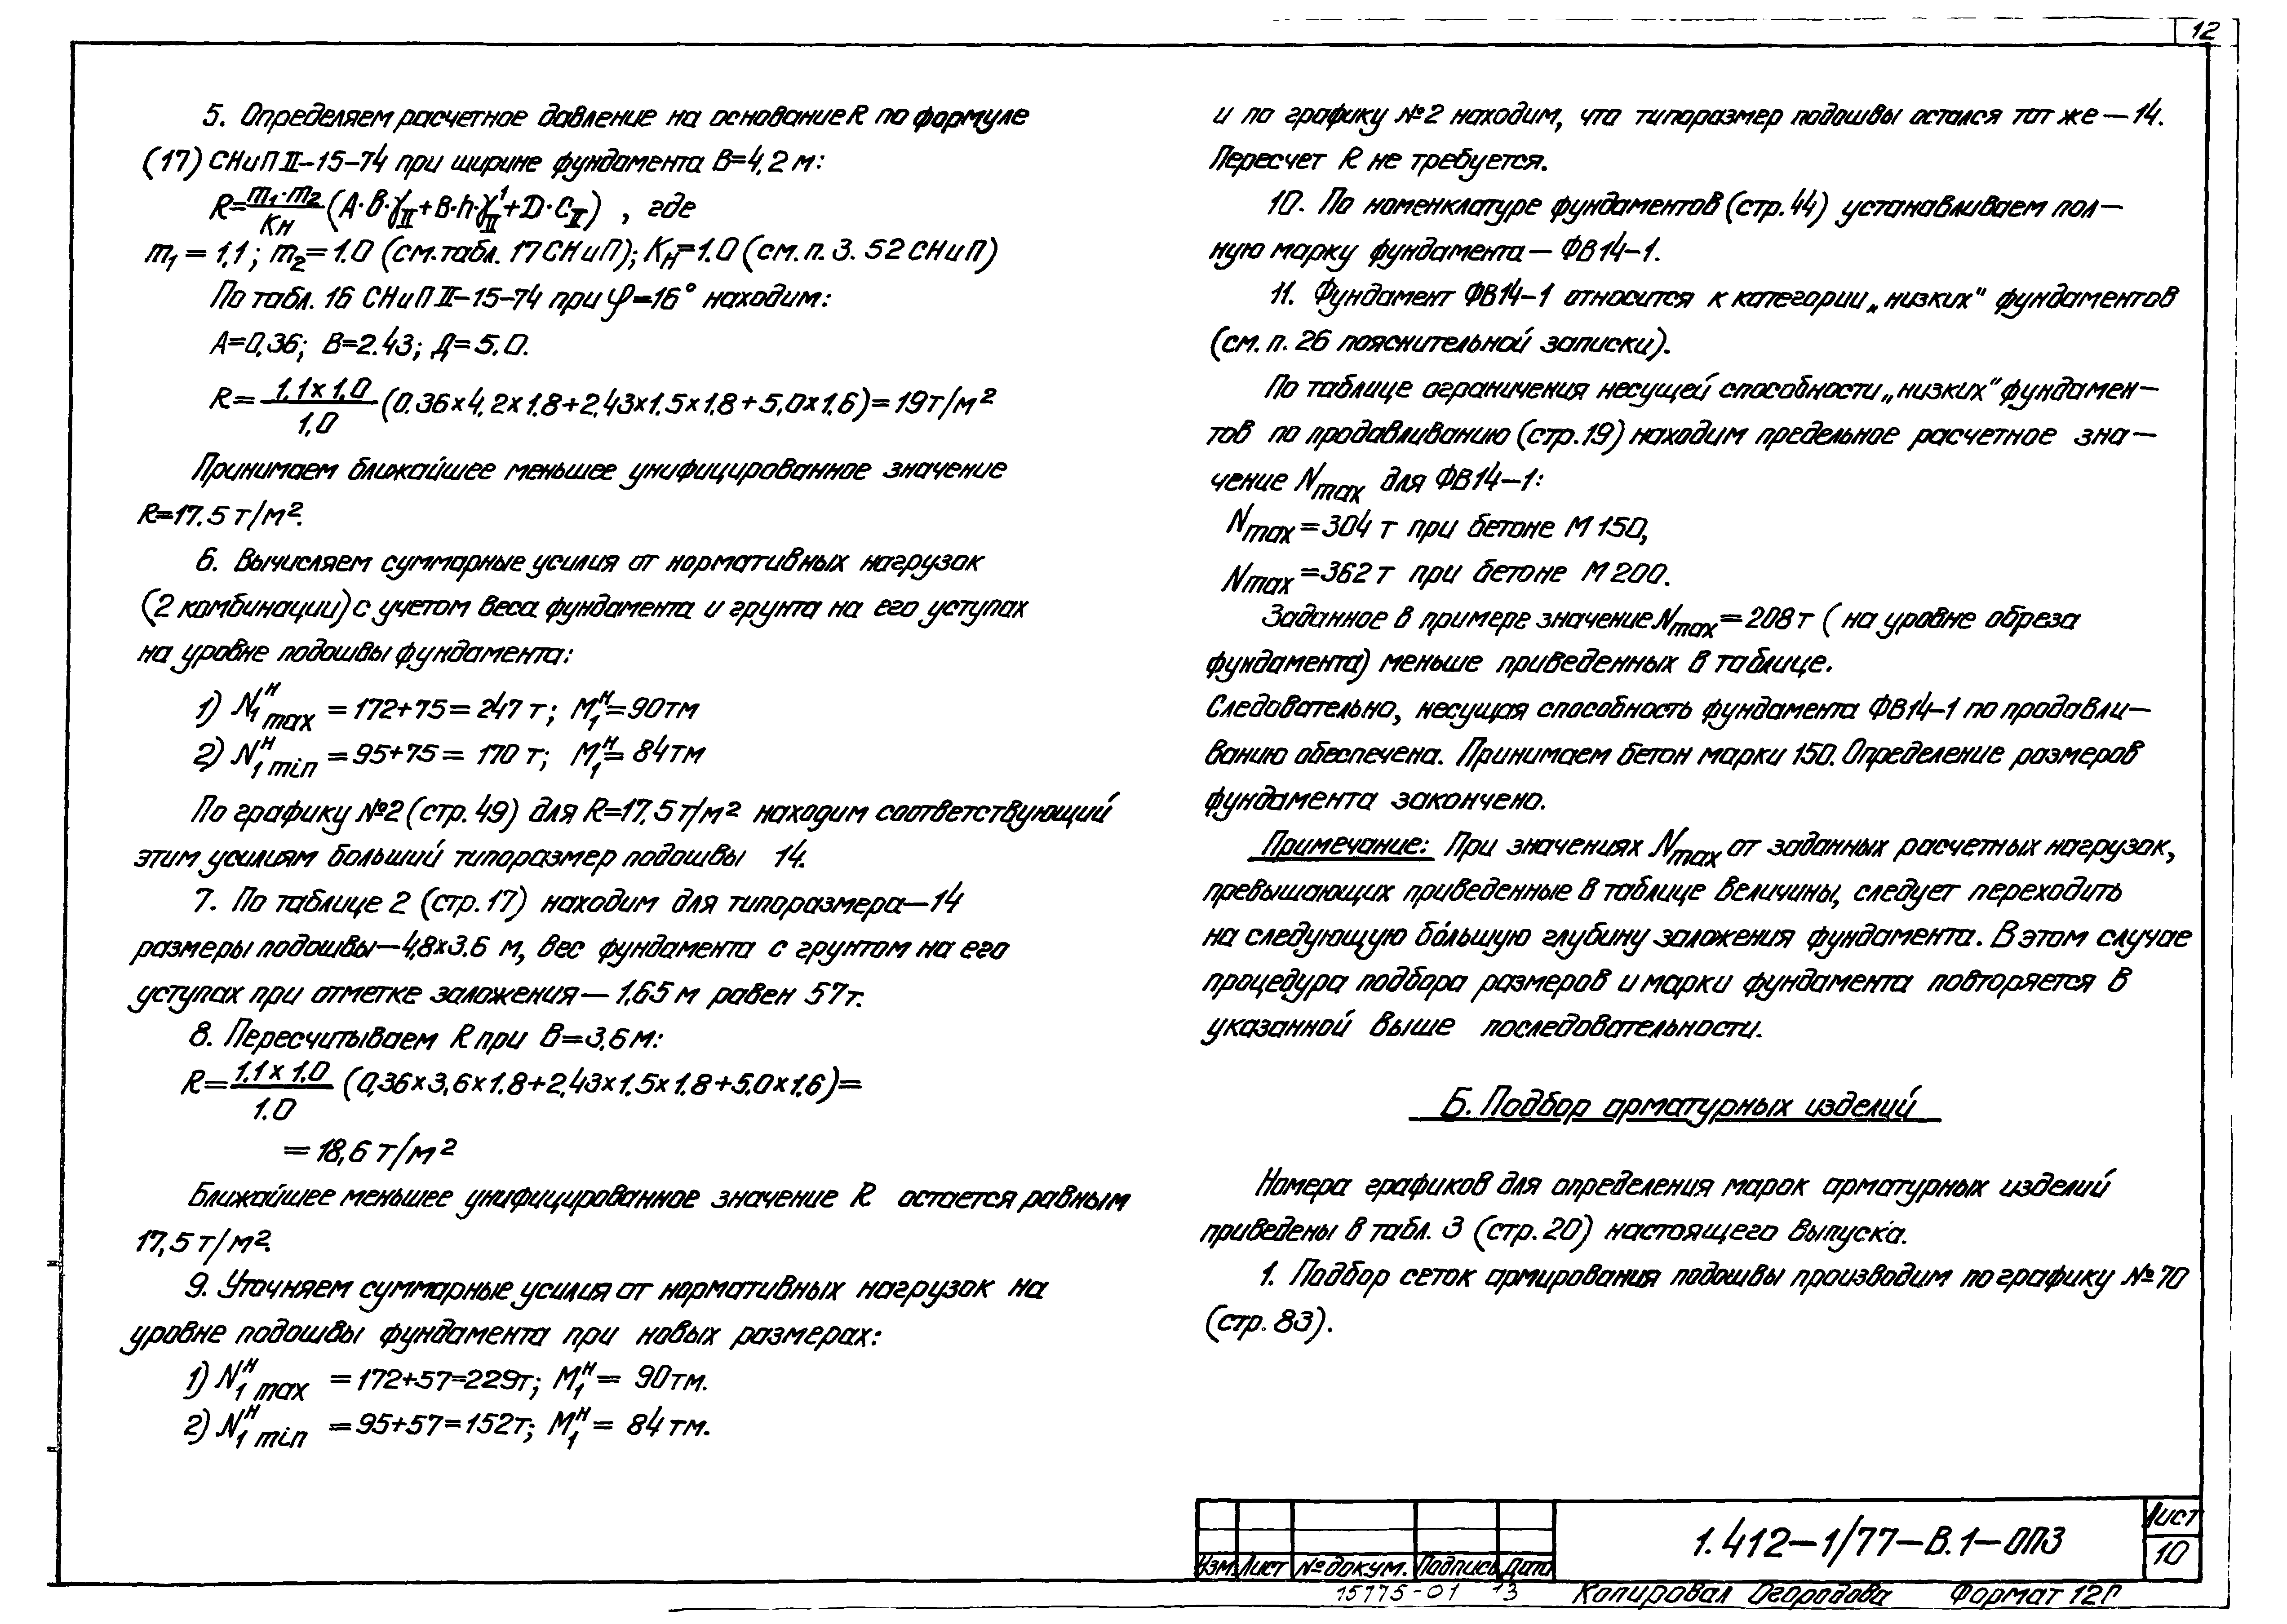 12
5. Определяем расчетное давление на основание R по формуле
(17) СНиП II-15-74 при ширине фундамента B=4,2 м:
R= m₁·m₂/Kн (A·B·γII+B·h·γ'II+D·CII) , где
m₁ = 1,1; m₂=1.0 (см.табл. 17 СНиП); Kн=1.0 (см. п. 3. 52 СНиП)
По табл. 16 СНиП II-15-74 при φ=16° находим:
A=0,36; B=2.43; Д=5.0.
R= 1.1×1.0/1.0 (0.36×4,2×1.8+2,43×1.5×1.8+5,0×1.6)=19т/м²
Принимаем ближайшее меньшее унифицированное значение
R=17.5 т/м².
6. Вычисляем суммарные усилия от нормативных нагрузок
(2 комбинации) с учетом веса фундамента и грунта на его уступах
на уровне подошвы фундамента:
1) N₁ᴴmax =172+75=247 т; M₁ᴴ=90тм
2) N₁ᴴmin =95+75= 170 т; M₁ᴴ= 84тм
По графику №2 (стр. 49) для R=17,5 т/м² находим соответствующий
этим усилиям больший типоразмер подошвы 14.
7. По таблице 2 (стр. 17) находим для типоразмера—14
размеры подошвы—4,8×3.6 м, вес фундамента с грунтом на его
уступах при отметке заложения— 1,65 м равен 57т.
8. Пересчитываем R при B=3,6м:
R= 1.1×1.0/1.0 (0,36×3,6×1.8+2,43×1,5×1.8+5.0×1.6)=
= 18,6 т/м²
Ближайшее меньшее унифицированное значение R остается равным
17,5 т/м².
9. Уточняем суммарные усилия от нормативных нагрузок на
уровне подошвы фундамента при новых размерах:
1) N₁ᴴmax =172+57=229т; M₁ᴴ= 90тм.
2) N₁ᴴmin =95+57=152т; M₁ᴴ= 84 тм.
и по графику №2 находим, что типоразмер подошвы остался тот же — 14.
Пересчет R не требуется.
10. По номенклатуре фундаментов (стр. 44) устанавливаем пол—
ную марку фундамента — ФВ14-1.
11. Фундамент ФВ14-1 относится к категории „низких" фундаментов
(см. п. 26 пояснительной записки).
По таблице ограничения несущей способности „низких" фундамен—
тов по продавливанию (стр. 19) находим предельное расчетное зна—
чение Nmax для ФВ14-1:
Nmax =304 т при бетоне М 150,
Nmax =362 т при бетоне М 200.
Заданное в примере значение Nmax=208 т ( на уровне обреза
фундамента) меньше приведенных в таблице.
Следовательно, несущая способность фундамента ФВ14-1 по продавли—
ванию обеспечена. Принимаем бетон марки 150. Определение размеров
фундамента закончено.
Примечание: При значениях Nmax от заданных расчетных нагрузок,
превышающих приведенные в таблице величины, следует переходить
на следующую бо́льшую глубину заложения фундамента. В этом случае
процедура подбора размеров и марки фундамента повторяется в
указанной выше последовательности.
Б. Подбор арматурных изделий
Номера графиков для определения марок арматурных изделий
приведены в табл. 3 (стр. 20) настоящего выпуска.
1. Подбор сеток армирования подошвы производим по графику №70
(стр. 83).
1.412—1/77—В.1—ОПЗ
Лист
10
Изм. Лист №докум. Подпись Дата
15775-01 13
Копировал Огородова Формат 12Г